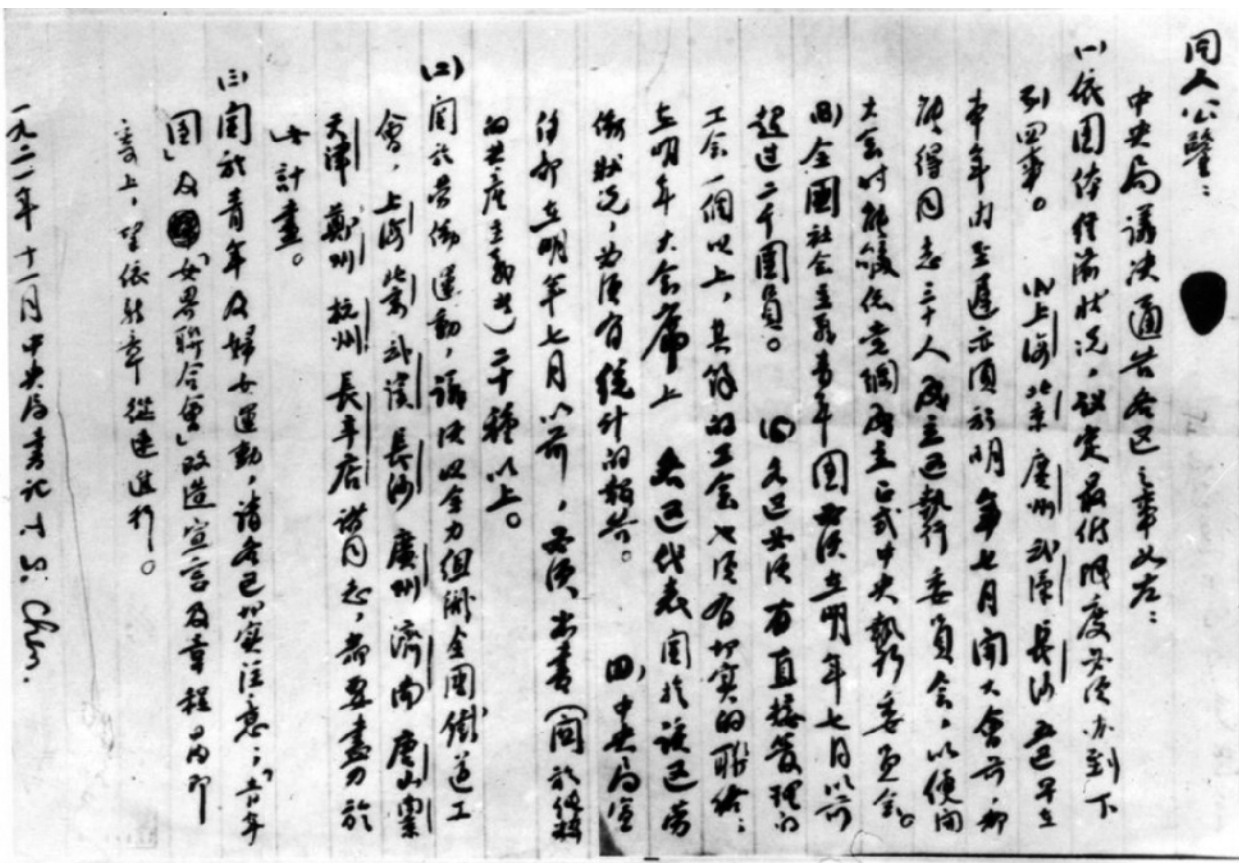 同人公鑒：
中央局議决通告各區之事如左：
(一)依團体經濟狀况，議定最低限度必須办到下
列四事。 (A)上海北京廣州武漢長沙五區早在
本年内至遲亦須於明年七月開大會前，都
須得同志三十人成立區執行委員會，以便開
大会时能够依党綱成立正式中央執行委員会。
(B)全國社会主義青年團必須在明年七月以前
超过二千團員。 (C)各區必须有直接管理的
工会一個以上，其餘的工会也須有切实的联络；
在明年大会席上 各區代表關於該區劳
働狀况，必須有统计的報告。 (D)中央局宣
傳部在明年七月以前，必須出書(關於純粹
的共產主義者)二十種以上。
(二)関於劳働運動，議决以全力组織全國鐵道工
會，上海北京武漢長沙廣州濟南唐山南京
天津鄭州杭州長辛店諸同志，都要盡力於
此計畫。
(三)関於青年及婦女運動，請各區切实注意；「青年
團」及「女界聯合會」改造宣言及章程日内即
寄上，望依新章從速進行。
一九二一年十一月中央局書記 T.S. Chen.